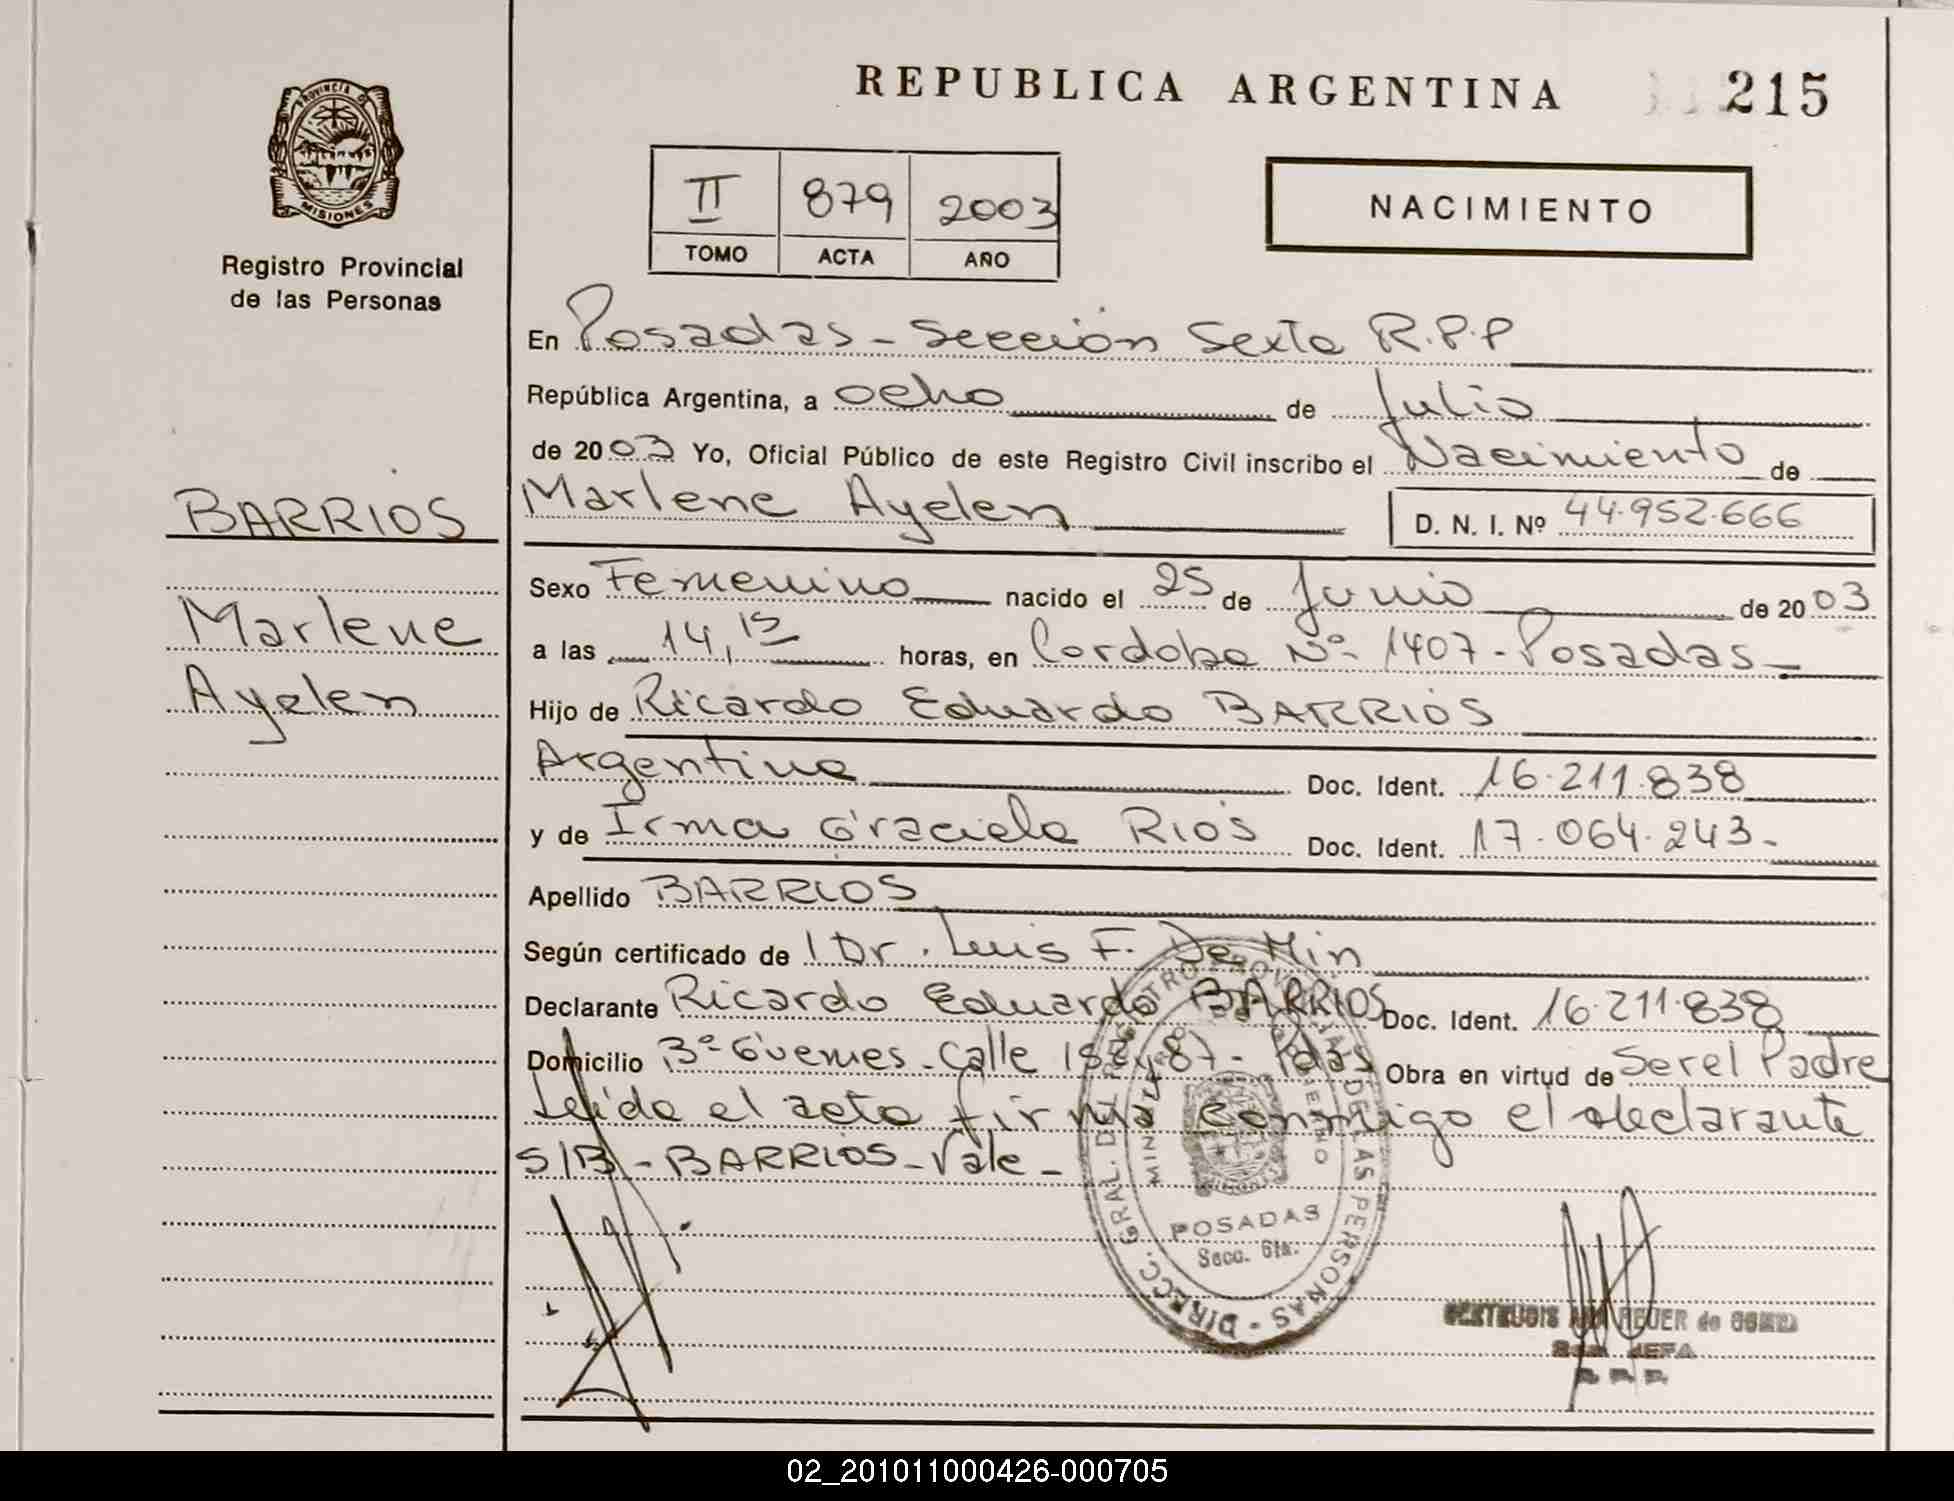 REPUBLICA ARGENTINA
215
PROVINCIA DE
MISIONES
Registro Provincial
de las Personas
II 879 2003
TOMO ACTA AÑO
NACIMIENTO
En Posadas - Sección Sexta R.P.P
República Argentina, a ocho de Julio
de 2003 Yo, Oficial Público de este Registro Civil inscribo el Nacimiento de
BARRIOS
Marlene Ayelen
D. N. I. Nº 44.952.666
Sexo Femenino nacido el 25 de Junio de 2003
Marlene
a las 14,15 horas, en Cordoba Nº 1407 - Posadas
Ayelen
Hijo de Ricardo Eduardo BARRIOS
Argentina Doc. Ident. 16.211.838
y de Irma Graciela RIOS Doc. Ident. 17.064.243.-
Apellido BARRIOS
Según certificado de 1 Dr. Luis F. De Min
Declarante Ricardo Eduardo BARRIOS Doc. Ident. 16.211.838
Domicilio Bº Güemes - Calle - Pdas Obra en virtud de Ser el Padre
Leida el acta firma conmigo el declarante
S/B - BARRIOS - Vale -
DIRECC. GRAL. DEL REGISTRO PROVINCIAL DE LAS PERSONAS
POSADAS
Secc. 6ta.
REUER de
JEFA
02_201011000426-000705